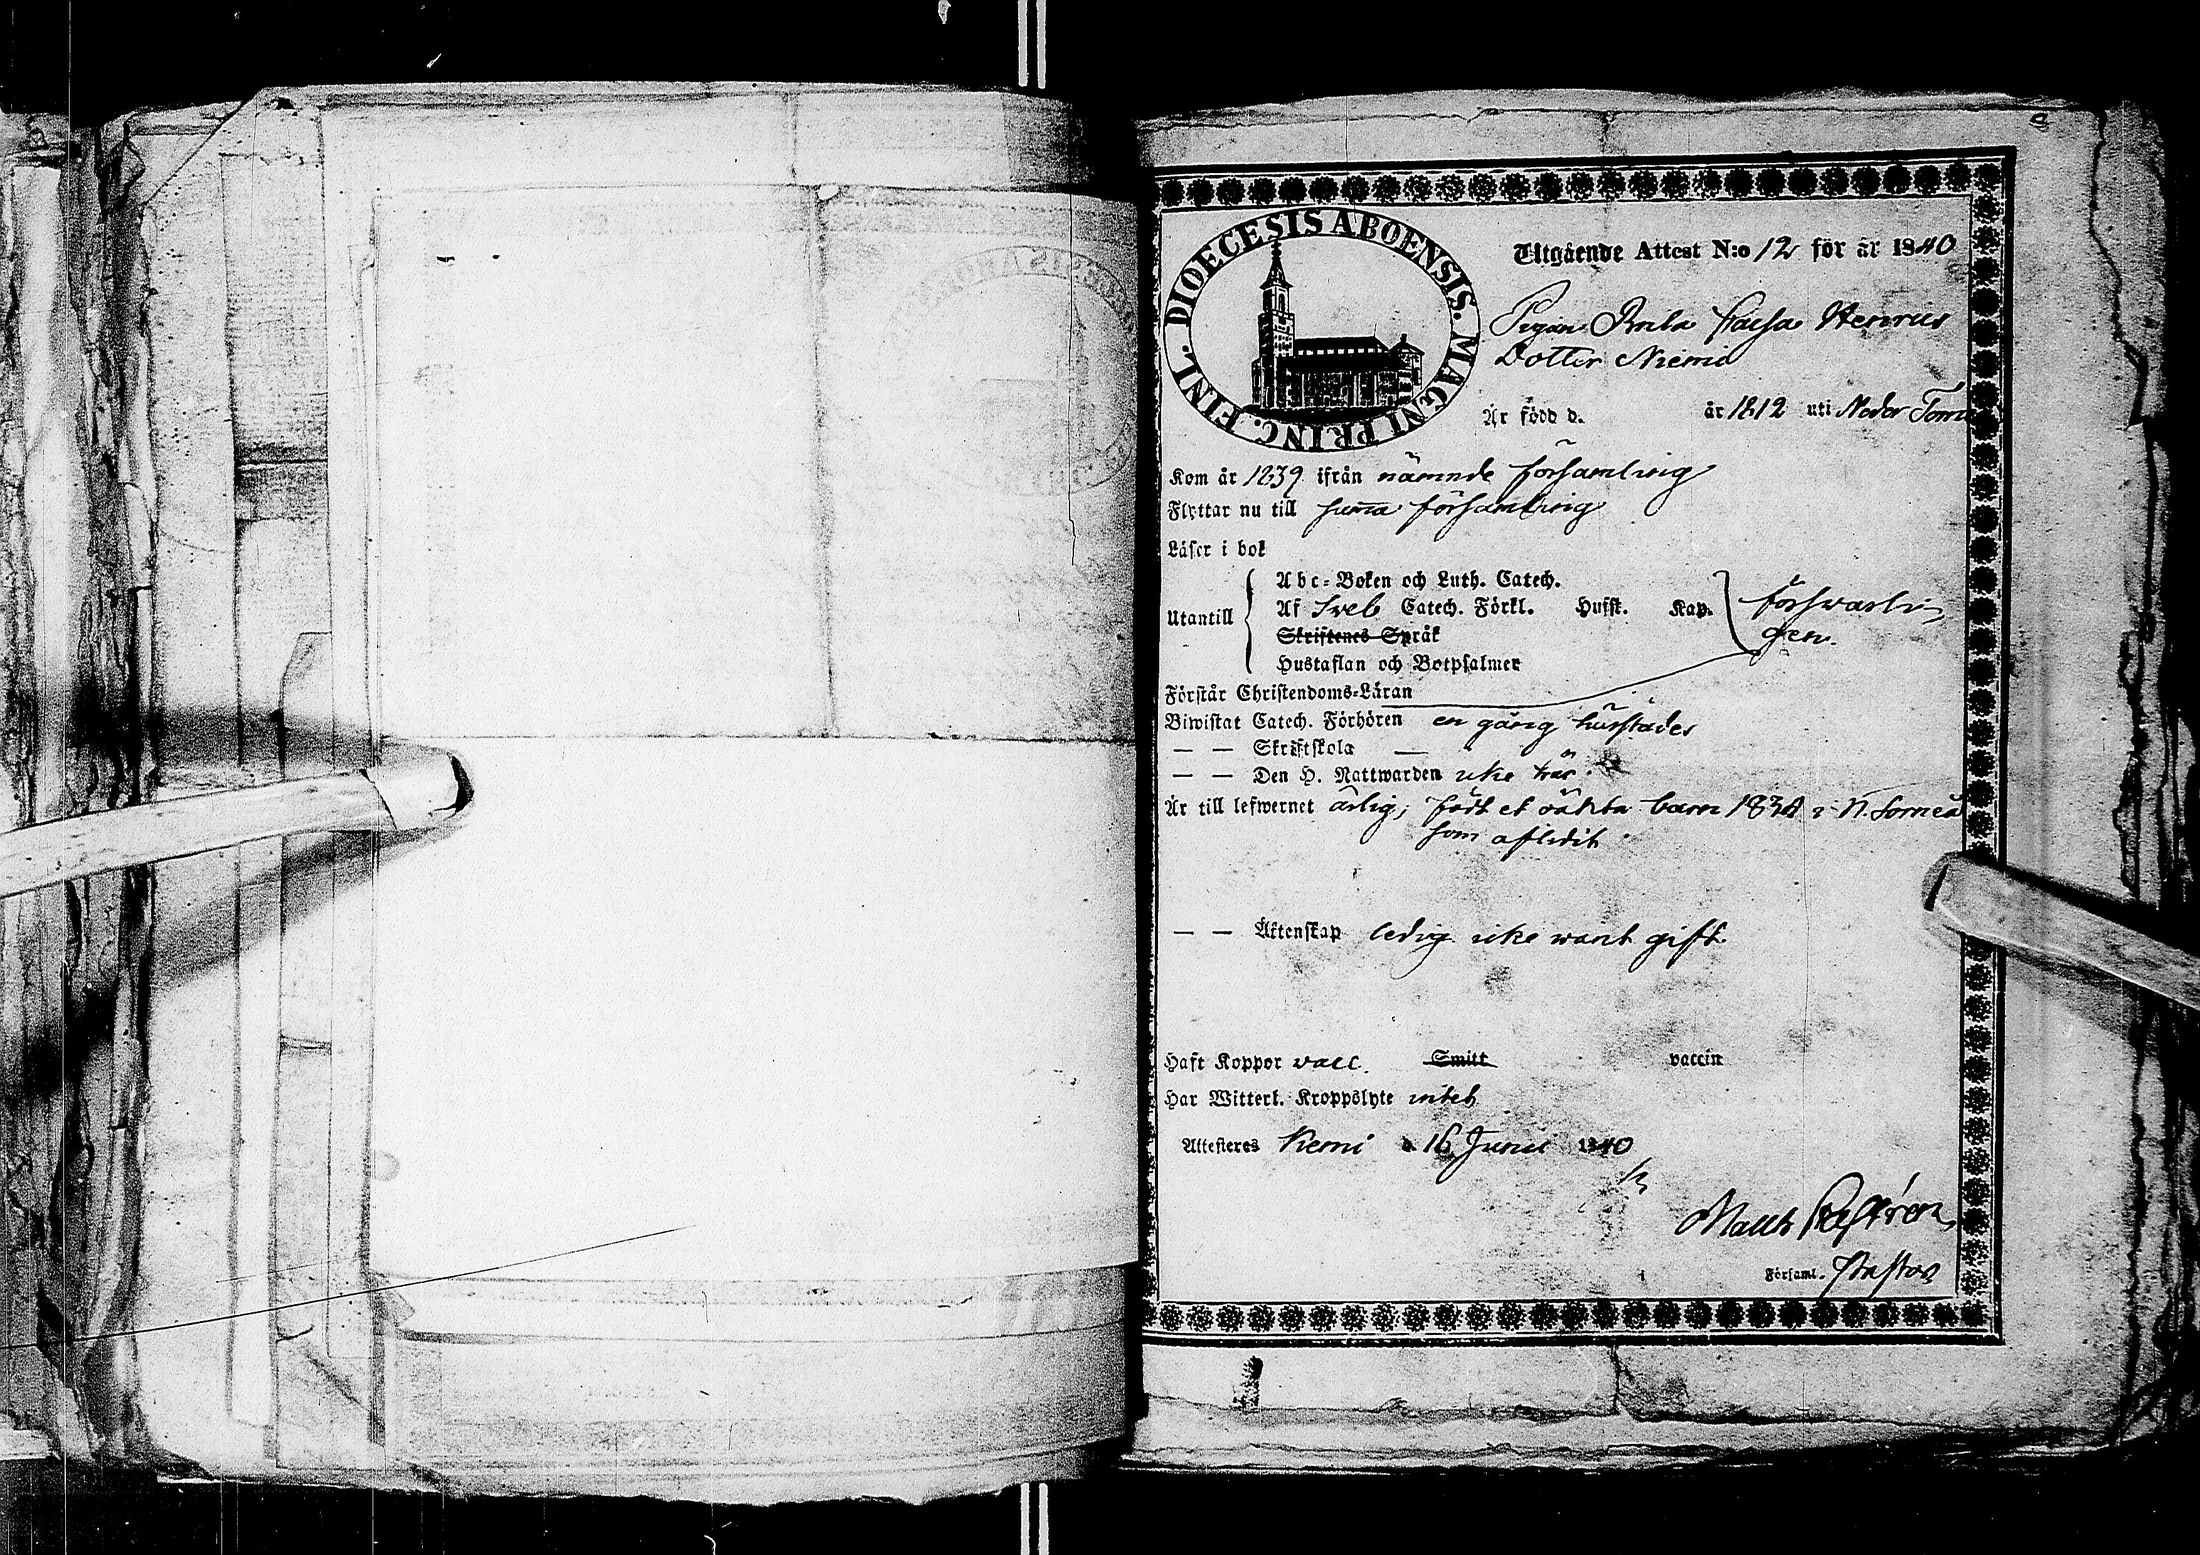 DIOECESIS ABOENSIS. MAGNI PRINC. FINL.
Utgående Attest N:o 12 för år 1840
Pigan Brita Caisa Henrics
Dotter Niemi
Är född d. år 1812 uti Neder Torne
Kom år 1839 ifrån nämnde församling
Flyttar nu till samma församling
Läser i bok
Utantill
Abc-Boken och Luth. Catech.
Af Sveb Catech. Förkl. Husst. Kap.
Skriftenes Språk
Hustaflan och Botpsalmer
försvarli-
gen.
Förstår Christendoms-Läran
Biwistat Catech. Förhören en gång härstädes
— — Skriftskola —
— — Den H. Nattwarden icke här.
Är till lefwernet ärlig, födt et oäkta barn 1838 i N. Torneå
som aflidit.
— — Äktenskap ledig icke warit gift.
Haft Koppor vacc. Smitt vaccin
Har Witterl. Kroppslyte intet
Attesteres Kemi d 16 Junii 1840
Matts Castrén
Församl. Pastor